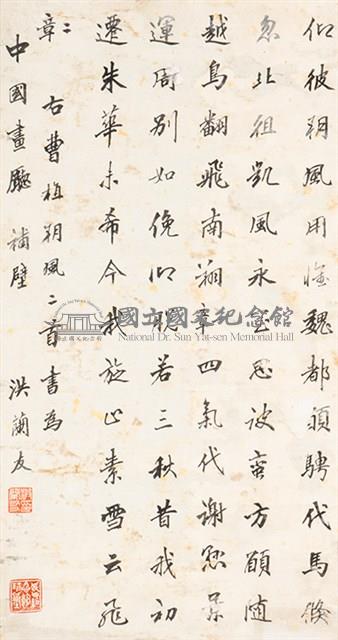 仰彼朔風用懷魏都願騁代馬倏
忽北徂凱風永至思彼蠻方願隨
越鳥翻飛南翔章四氣代謝懸景
運周別如俛仰脫若三秋昔我初
遷朱華未希今我旋止素雪云飛
二章 右曹植朔風二首書為
中國畫廳補壁 洪蘭友
國立國父紀念館
National Dr. Sun Yat-sen Memorial Hall